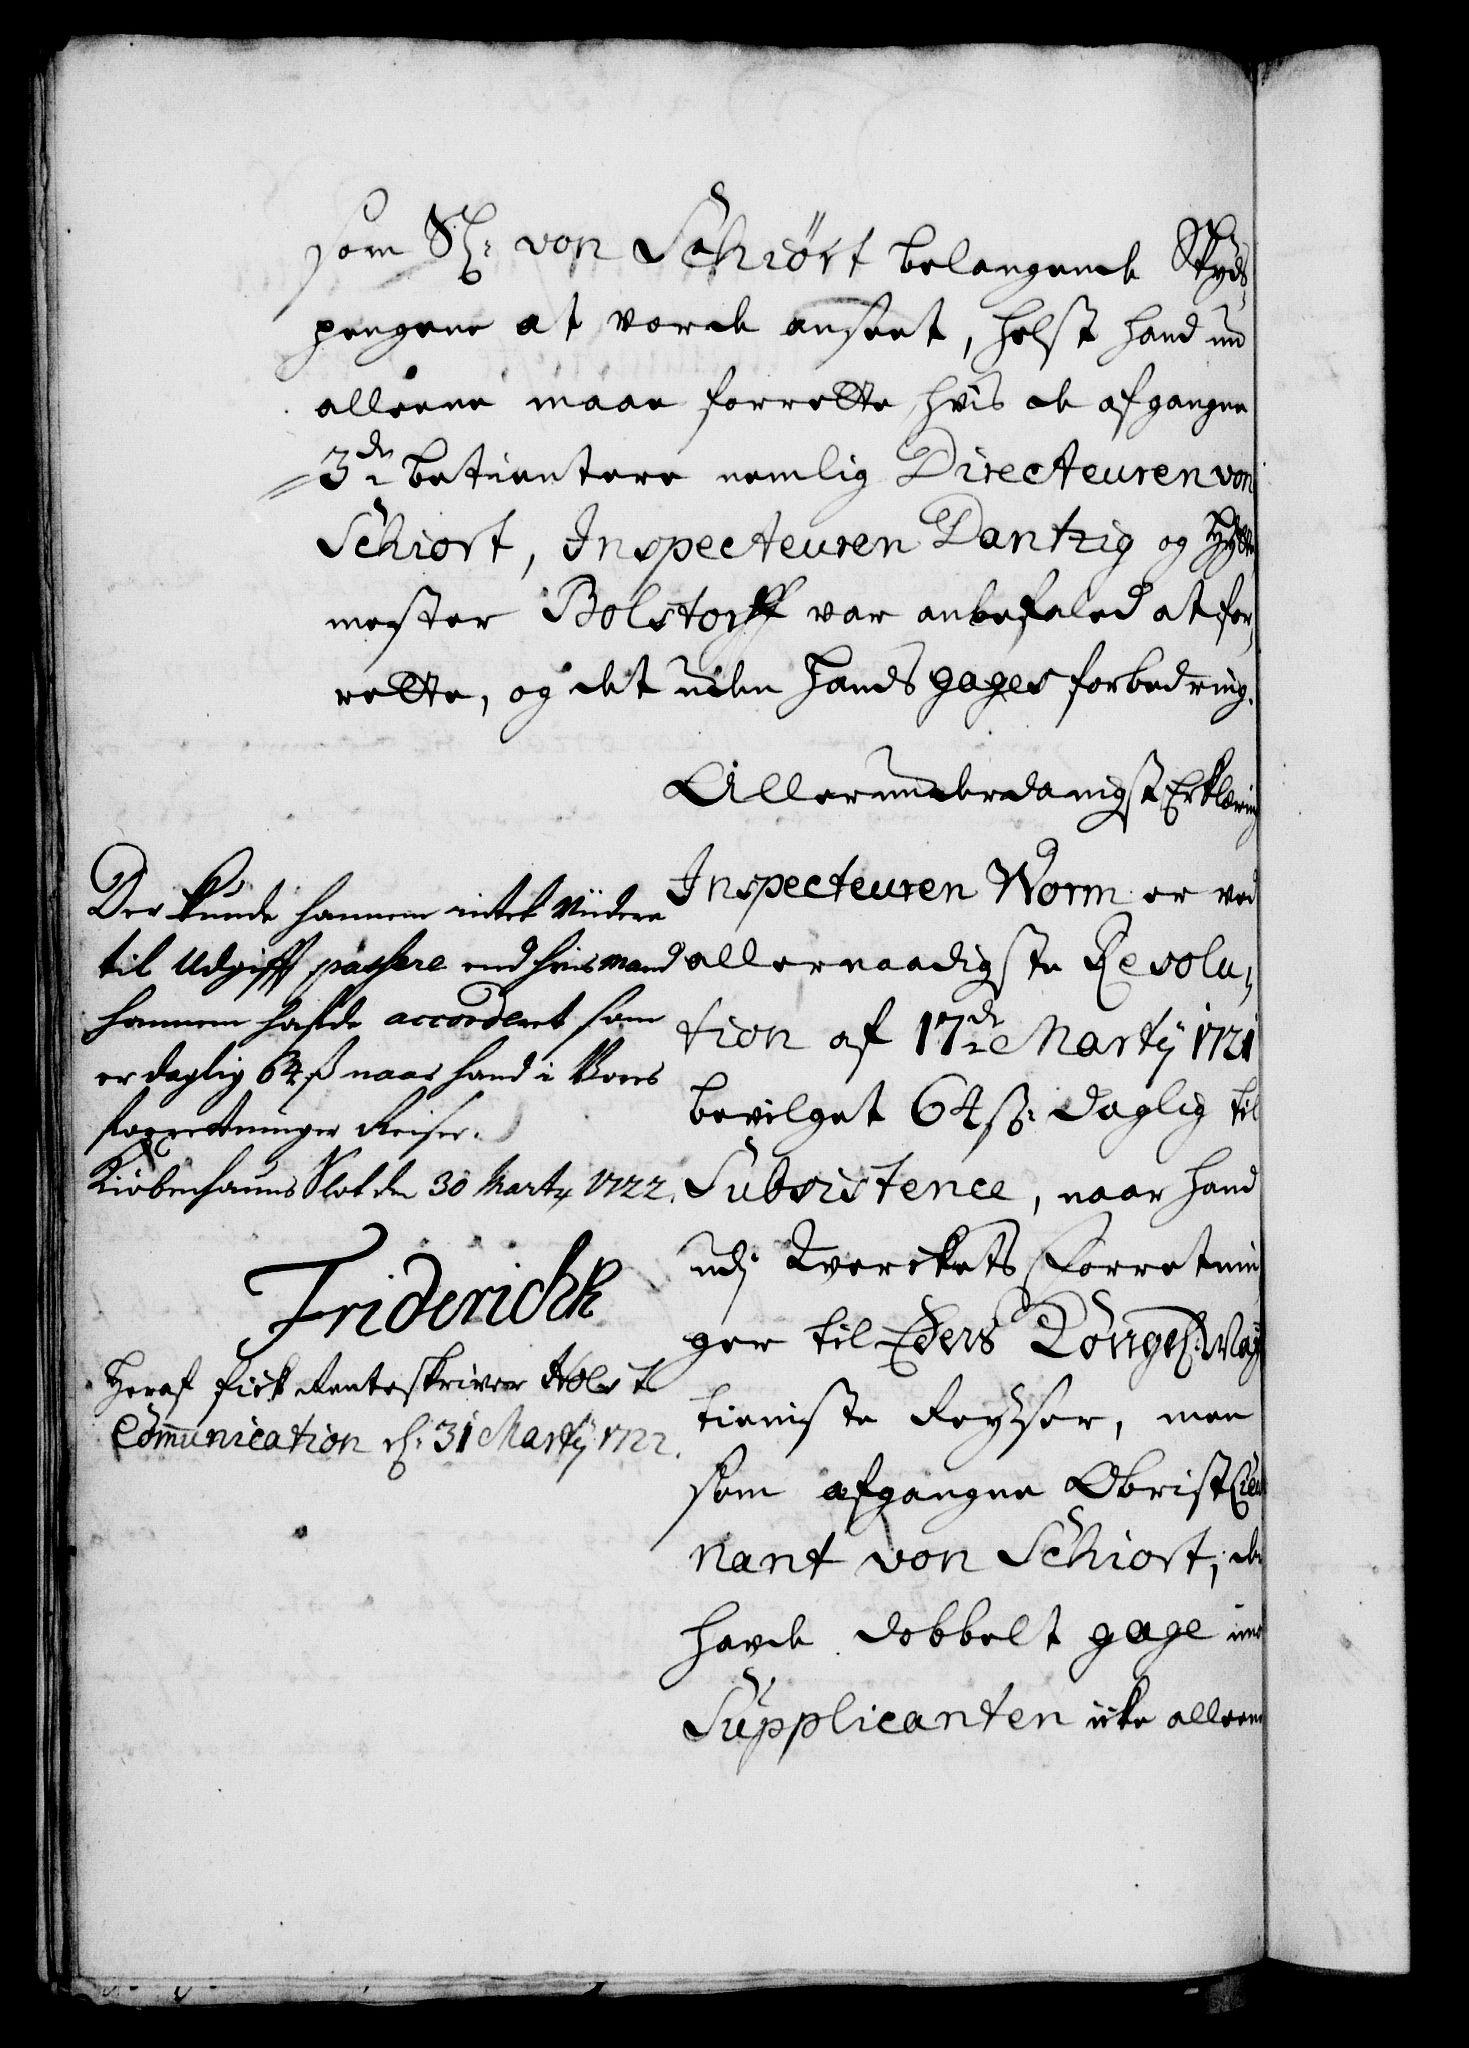 som Sl: von Schiört belangende Skyds-
pengene at vorde anseet, helst hand nu
alleene maae forrette, hvis de afgangne
3de betientere nemlig Directeuren von
Schiort, Inspecteuren Dantzig og Hytte
mester Bolstorff var anbefaled at for,
rette, og det uden hands gages forbedring.
Allerunderdanigst Erklæring
Inspecteuren Worm er ved
allernaadigste Resolu,
tion af 17de Martij 1721
bevilget 64 ß: daglig til
Subsistence, naar hand
udj Werckets Forretnin
ger til Eders Konngl: May
tieniste Reyser, men
som afgangne Obrist Lieut
nant von Schiort, der
havde dobbelt gage imod
Supplicanten icke alleene
Der kunde hannem intet viidere
til Udgifft passere end hvis mand
hannem hafde accorderet som
er daglig 64 ß naar hand i Vores
forrettninger Reiser.
Kiøbenhauns Slot den 30 Martij 1722.
Friderich R
Heraf fick Renteskriver Holst
Communication d: 31 Martij 1722.